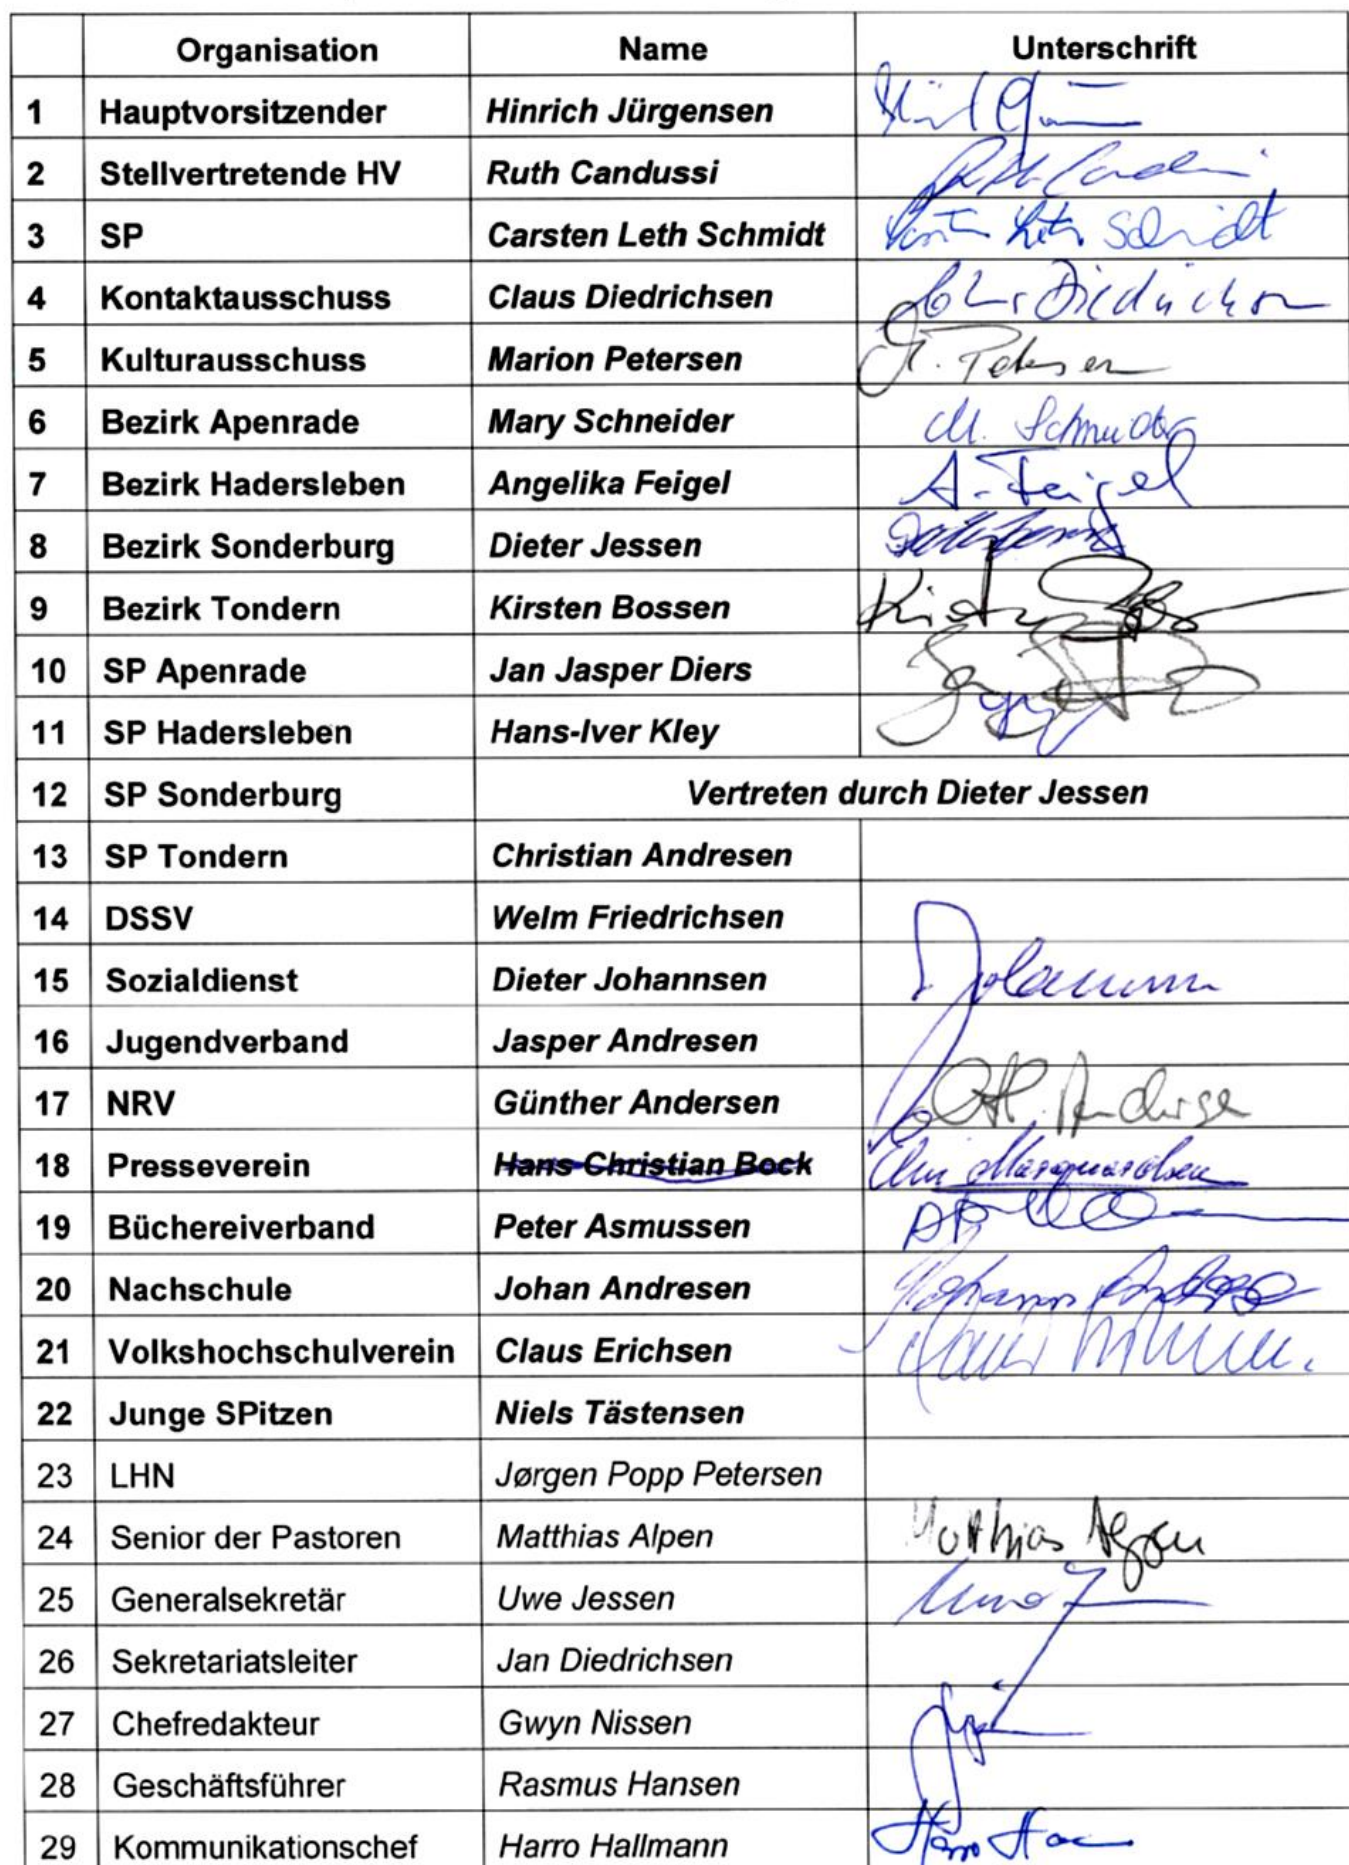 Organisation Name Unterschrift
1 Hauptvorsitzender Hinrich Jürgensen
2 Stellvertretende HV Ruth Candussi
3 SP Carsten Leth Schmidt Leth Schmidt
4 Kontaktausschuss Claus Diedrichsen Diedrichsen
5 Kulturausschuss Marion Petersen M. Petersen
6 Bezirk Apenrade Mary Schneider M. Schneider
7 Bezirk Hadersleben Angelika Feigel A. Feigel
8 Bezirk Sonderburg Dieter Jessen
9 Bezirk Tondern Kirsten Bossen
10 SP Apenrade Jan Jasper Diers
11 SP Hadersleben Hans-Iver Kley
12 SP Sonderburg Vertreten durch Dieter Jessen
13 SP Tondern Christian Andresen
14 DSSV Welm Friedrichsen
15 Sozialdienst Dieter Johannsen
16 Jugendverband Jasper Andresen
17 NRV Günther Andersen
18 Presseverein Hans Christian Bock
19 Büchereiverband Peter Asmussen
20 Nachschule Johan Andresen
21 Volkshochschulverein Claus Erichsen
22 Junge SPitzen Niels Tästensen
23 LHN Jørgen Popp Petersen
24 Senior der Pastoren Matthias Alpen Matthias Alpen
25 Generalsekretär Uwe Jessen
26 Sekretariatsleiter Jan Diedrichsen
27 Chefredakteur Gwyn Nissen
28 Geschäftsführer Rasmus Hansen
29 Kommunikationschef Harro Hallmann